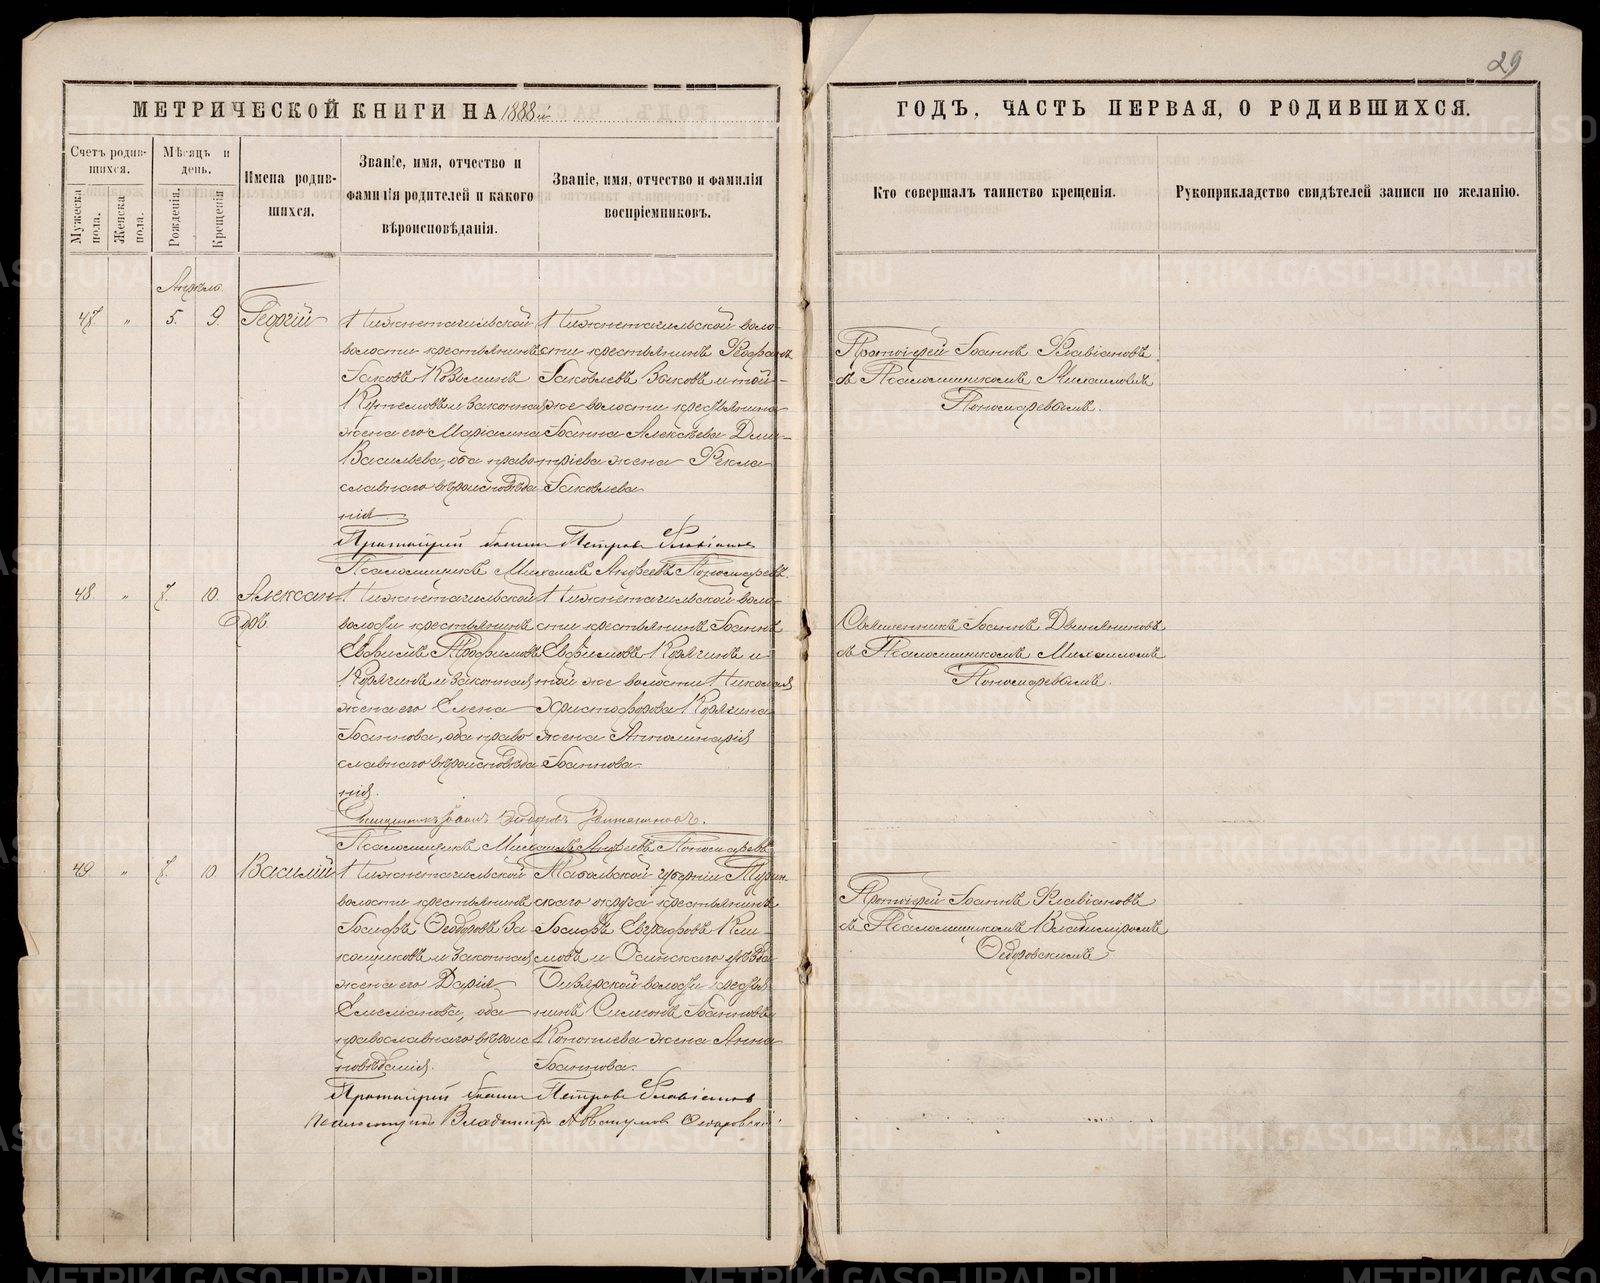 29
МЕТРИЧЕСКОЙ КНИГИ НА 1888 й
ГОДЪ, ЧАСТЬ ПЕРВАЯ, О РОДИВШИХСЯ.
Счетъ родив-
шихся.
Мужеска пола.
Женска пола.
Мѣсяцъ и
день.
Рожденія.
Крещенія
Имена родив-
шихся.
Званіе, имя, отчество и
фамилія родителей и какого
вѣроисповѣданія.
Званіе, имя, отчество и фамилія
воспріемниковъ.
Кто совершалъ таинство крещенія.
Рукоприкладство свидѣтелей записи по желанію.
47. " 5. 9. Георгій
Нижнетагильской
волости крестьянинъ
Іаковъ Козьминъ
и законная
жена его Маріамна
Васильева, оба право
славнаго вѣроисповѣда
нія.
Нижнетагильской воло-
сти крестьянинъ
Іаковлевъ и той-
же волости крестьянина
Іоанна Алексѣева Дми-
тріева жена Ѳекла
Іаковлева
Протоіерей Іоаннъ Флавіановъ
съ Псаломщикомъ Михаиломъ
Пономаревымъ.
Протоіерей Іоаннъ Петровъ Флавіановъ
Псаломщикъ Михаилъ Андреевъ Пономаревъ.
48 " 7. 10. Алексан
дръ.
Нижнетагильской
волости крестьянинъ
Евфимъ Трофимовъ
Корякинъ и законная
жена его Елена
Іоаннова, оба право
славнаго вѣроисповѣда
нія.
Нижнетагильской воло-
сти крестьянинъ Іоаннъ
Евфимовъ Корякинъ и
той же волости Николая
Христофорова Корякина
жена Апполинарія
Іоаннова.
Священникъ Іоаннъ
съ Псаломщикомъ Михаиломъ
Пономаревымъ.
Священникъ Іоаннъ
Псаломщикъ Михаилъ Андреевъ Пономаревъ
49 " 7. 10. Василій
Нижнетагильской
волости крестьянинъ
Іосифъ Ѳеодоровъ
и законная
жена его Дарія
Емеліанова, оба
православнаго вѣроис
повѣданія.
Тобольской губерніи Турин-
скаго округа крестьянинъ
Іосифъ Евграфовъ Кли-
мовъ и Осинскаго уѣзда
волости крестья
нина Симона Іоаннова
жена Анна
Іоаннова.
Протоіерей Іоаннъ Флавіановъ
съ Псаломщикомъ Владиміромъ
Ѳедоровскимъ
Протоіерей Іоаннъ Петровъ Флавіановъ
Псаломщикъ Владимиръ Ѳедоровскій
METRIKI.GASO-URAL.RU